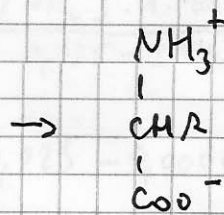 NH₃⁺
|
→ CHR
|
COO⁻